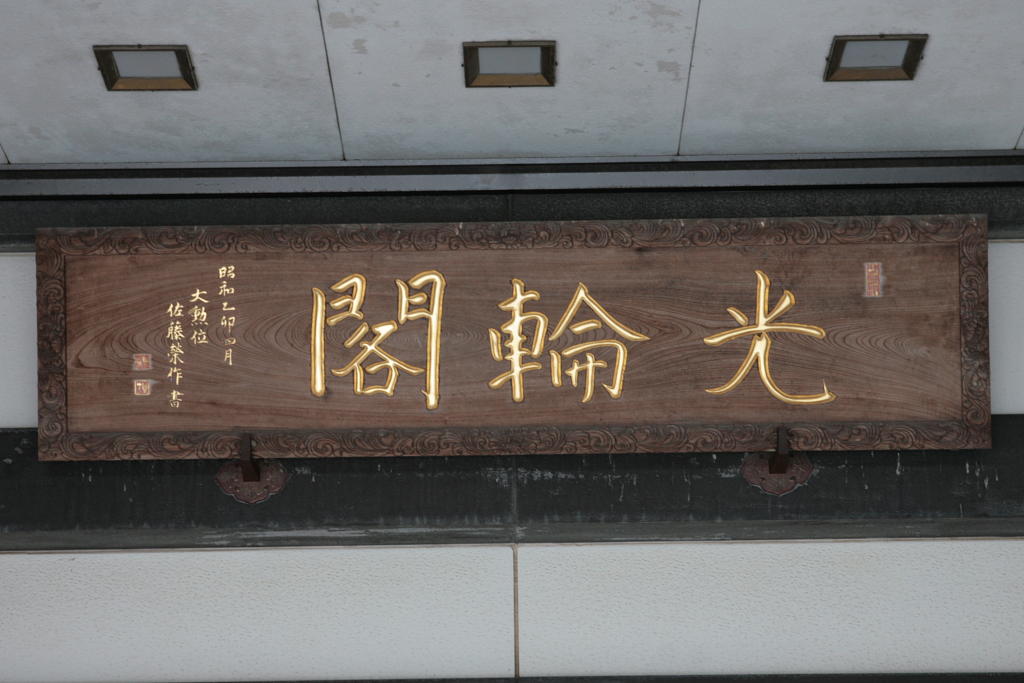 光輪閣
昭和乙卯四月
大勲位
佐藤榮作書